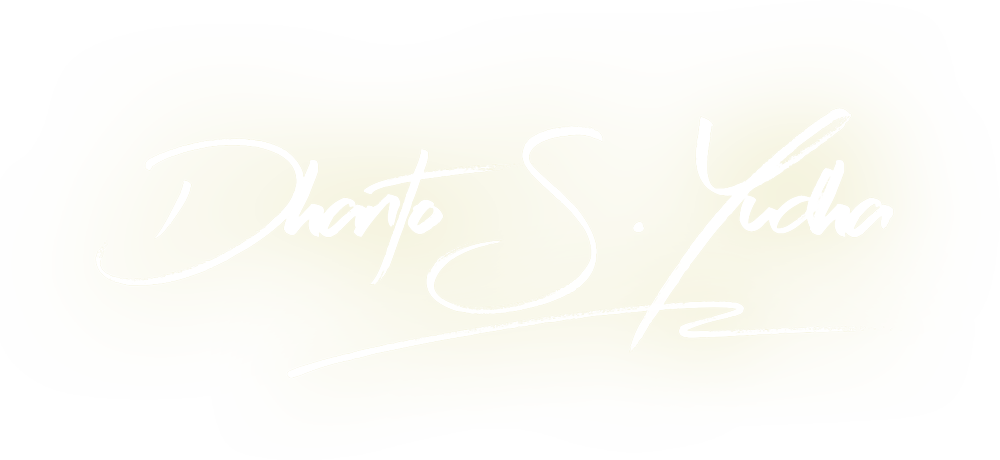 Dhanto S. Yudha